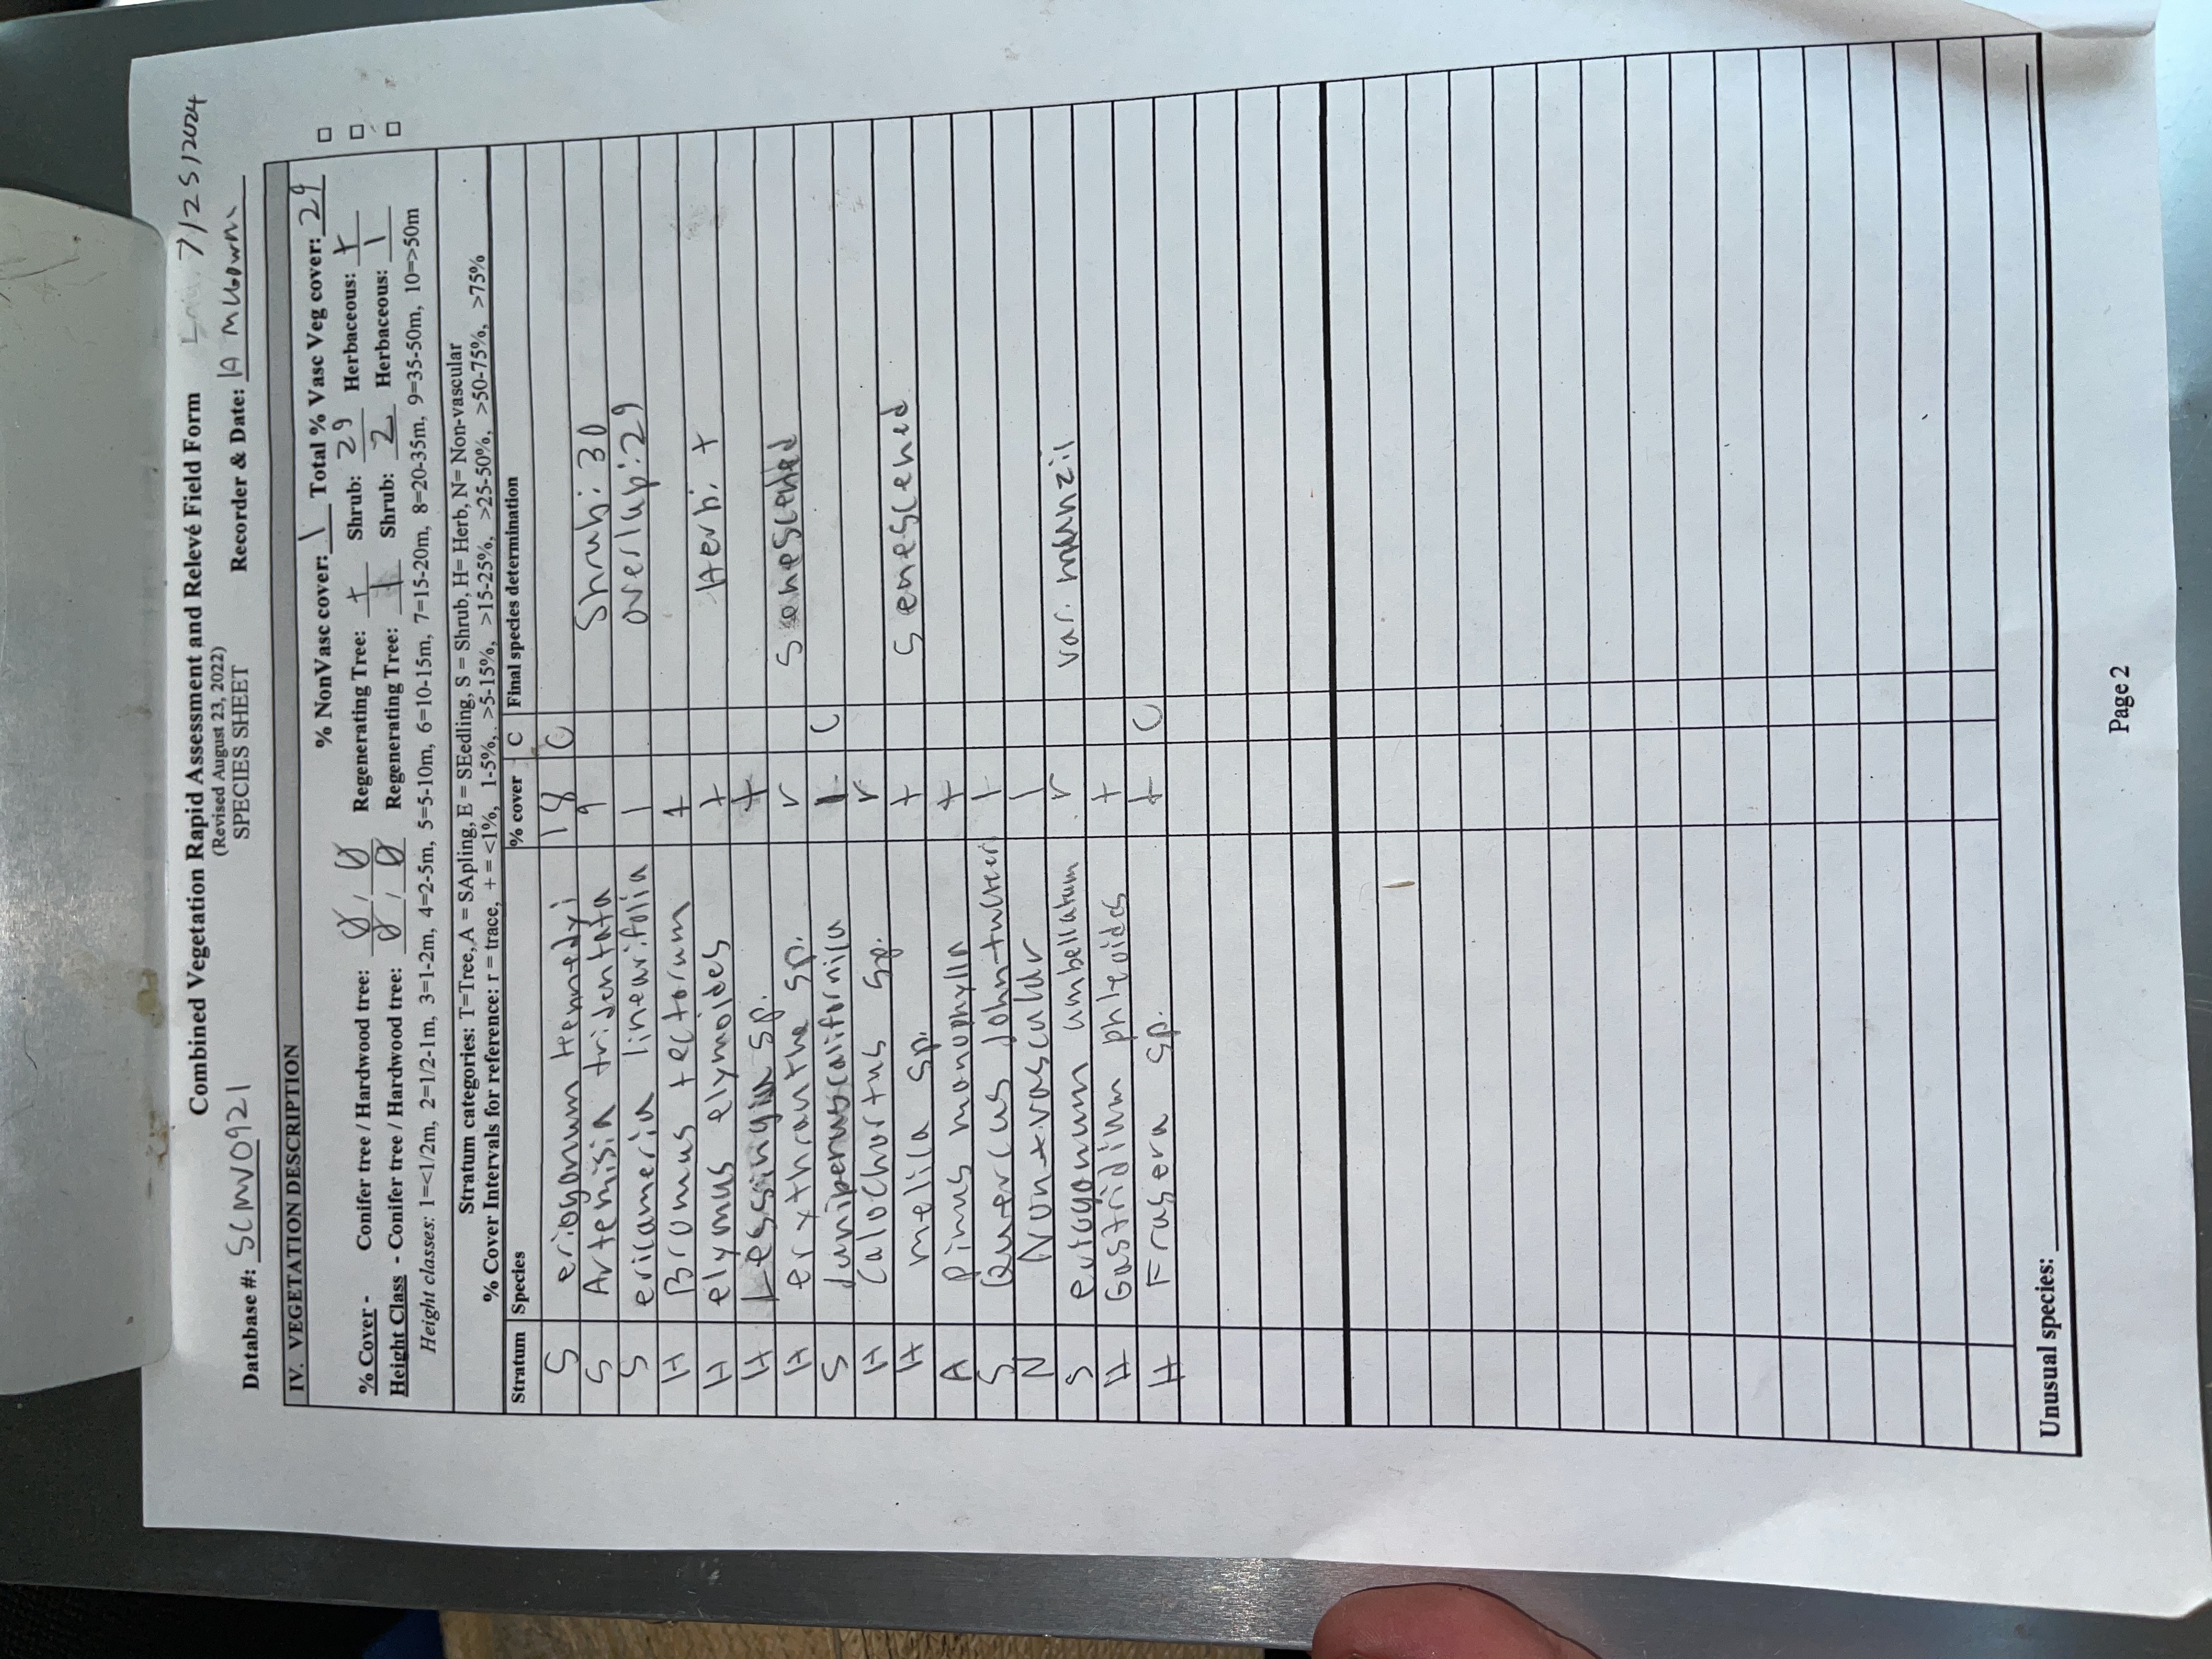 Combined Vegetation Rapid Assessment and Relevé Field Form
(Revised August 23, 2022)
7/25/2024
Database #: SCMV0921 SPECIES SHEET Recorder & Date: A
IV. VEGETATION DESCRIPTION
% NonVasc cover: 1 Total % Vasc Veg cover: 29 □
% Cover - Conifer tree / Hardwood tree: Ø / Ø Regenerating Tree: + Shrub: 29 Herbaceous: + □
Height Class - Conifer tree / Hardwood tree: Ø / Ø Regenerating Tree: 1 Shrub: 2 Herbaceous: 1 □
Height classes: 1=<1/2m, 2=1/2-1m, 3=1-2m, 4=2-5m, 5=5-10m, 6=10-15m, 7=15-20m, 8=20-35m, 9=35-50m, 10=>50m
Stratum categories: T=Tree, A = SApling, E = SEedling, S = Shrub, H= Herb, N= Non-vascular
% Cover Intervals for reference: r = trace, + = <1%, 1-5%, >5-15%, >15-25%, >25-50%, >50-75%, >75%
Stratum Species % cover C Final species determination
S eriogonum kennedyi 18 C
S Artemisia tridentata 9 Shrub: 30
S ericameria linearifolia 1 overlap: 29
H Bromus tectorum +
H elymus elymoides + Herb: +
H Lessingia sp. +
H erythranthe sp. r Senescented
S Juniperus californica 1 C
H Calochortus sp. r
H melica sp. + Senescened
A Pinus monophylla +
S Quercus john-tuckeri +
N Non-vascular 1
S eriogonum umbellatum r var.
H Gastridium phleoides +
H Frasera sp. + C
Unusual species:
Page 2